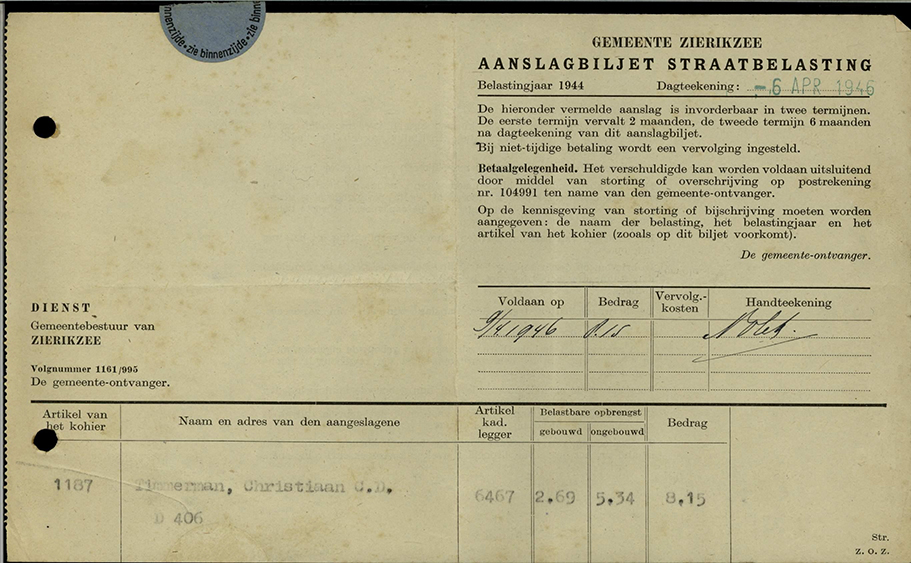 nenzijde • zie binnenzijde • zie binn
GEMEENTE ZIERIKZEE
AANSLAGBILJET STRAATBELASTING
Belastingjaar 1944 Dagteekening: -6 APR 1946
De hieronder vermelde aanslag is invorderbaar in twee termijnen.
De eerste termijn vervalt 2 maanden, de tweede termijn 6 maanden
na dagteekening van dit aanslagbiljet.
Bij niet-tijdige betaling wordt een vervolging ingesteld.
Betaalgelegenheid. Het verschuldigde kan worden voldaan uitsluitend
door middel van storting of overschrijving op postrekening
nr. 104991 ten name van den gemeente-ontvanger.
Op de kennisgeving van storting of bijschrijving moeten worden
aangegeven: de naam der belasting, het belastingjaar en het
artikel van het kohier (zooals op dit biljet voorkomt).
De gemeente-ontvanger.
DIENST
Gemeentebestuur van
ZIERIKZEE
Volgnummer 1161/995
De gemeente-ontvanger.
Voldaan op Bedrag Vervolg.-kosten Handteekening
9/4 1946 8.15
Artikel van het kohier
Naam en adres van den aangeslagene
Artikel kad. legger
Belastbare opbrengst
gebouwd ongebouwd
Bedrag
1187 Timmerman, Christiaan C.D. 6467 2.69 5.34 8.15
D 406
Str.
Z. O. Z.